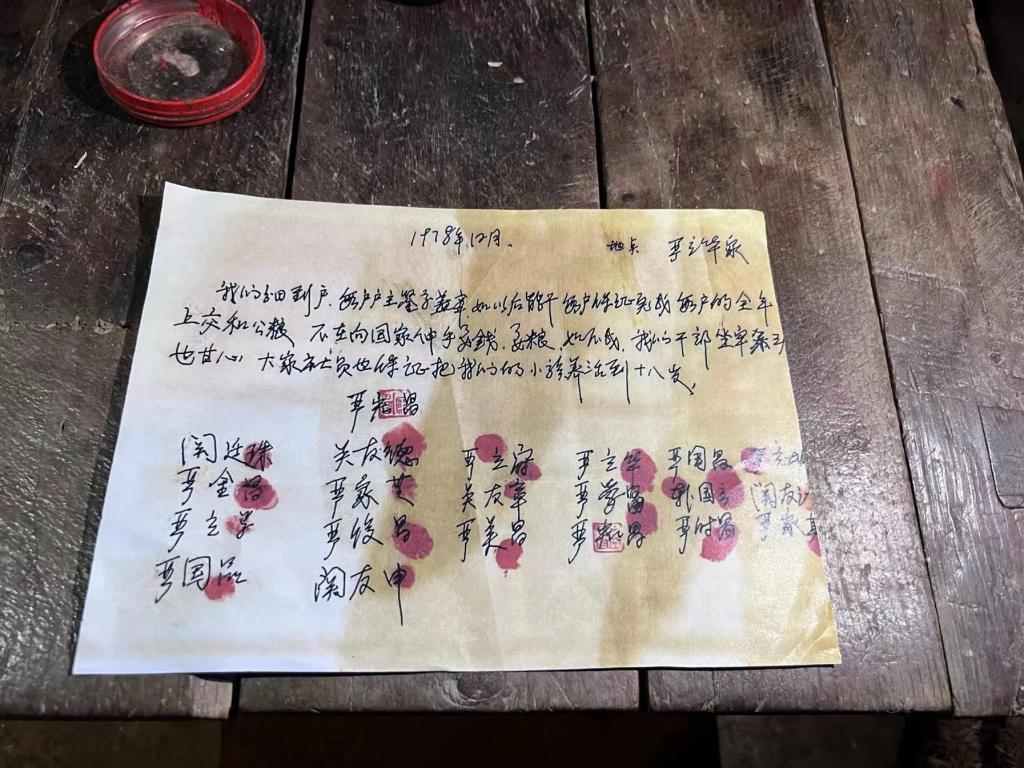 1978年12月. 地点 严立华家
我们分田到户.每户户主签字盖章如以后能干每户保证完成每户的全年
上交和公粮 不在向国家伸手要錢要粮.如不成.我们干部坐牢杀头
也甘心.大家社员也保证把我们的小孩养活到十八岁.
严宏昌
関廷珠 关友德 严立符 严立华 严国昌 严立坤
严金昌 严家芝 关友章 严学昌 韩国云 関友江
严立学 严俊昌 严美昌 严宏昌 严付昌 严家其
严国品 関友申